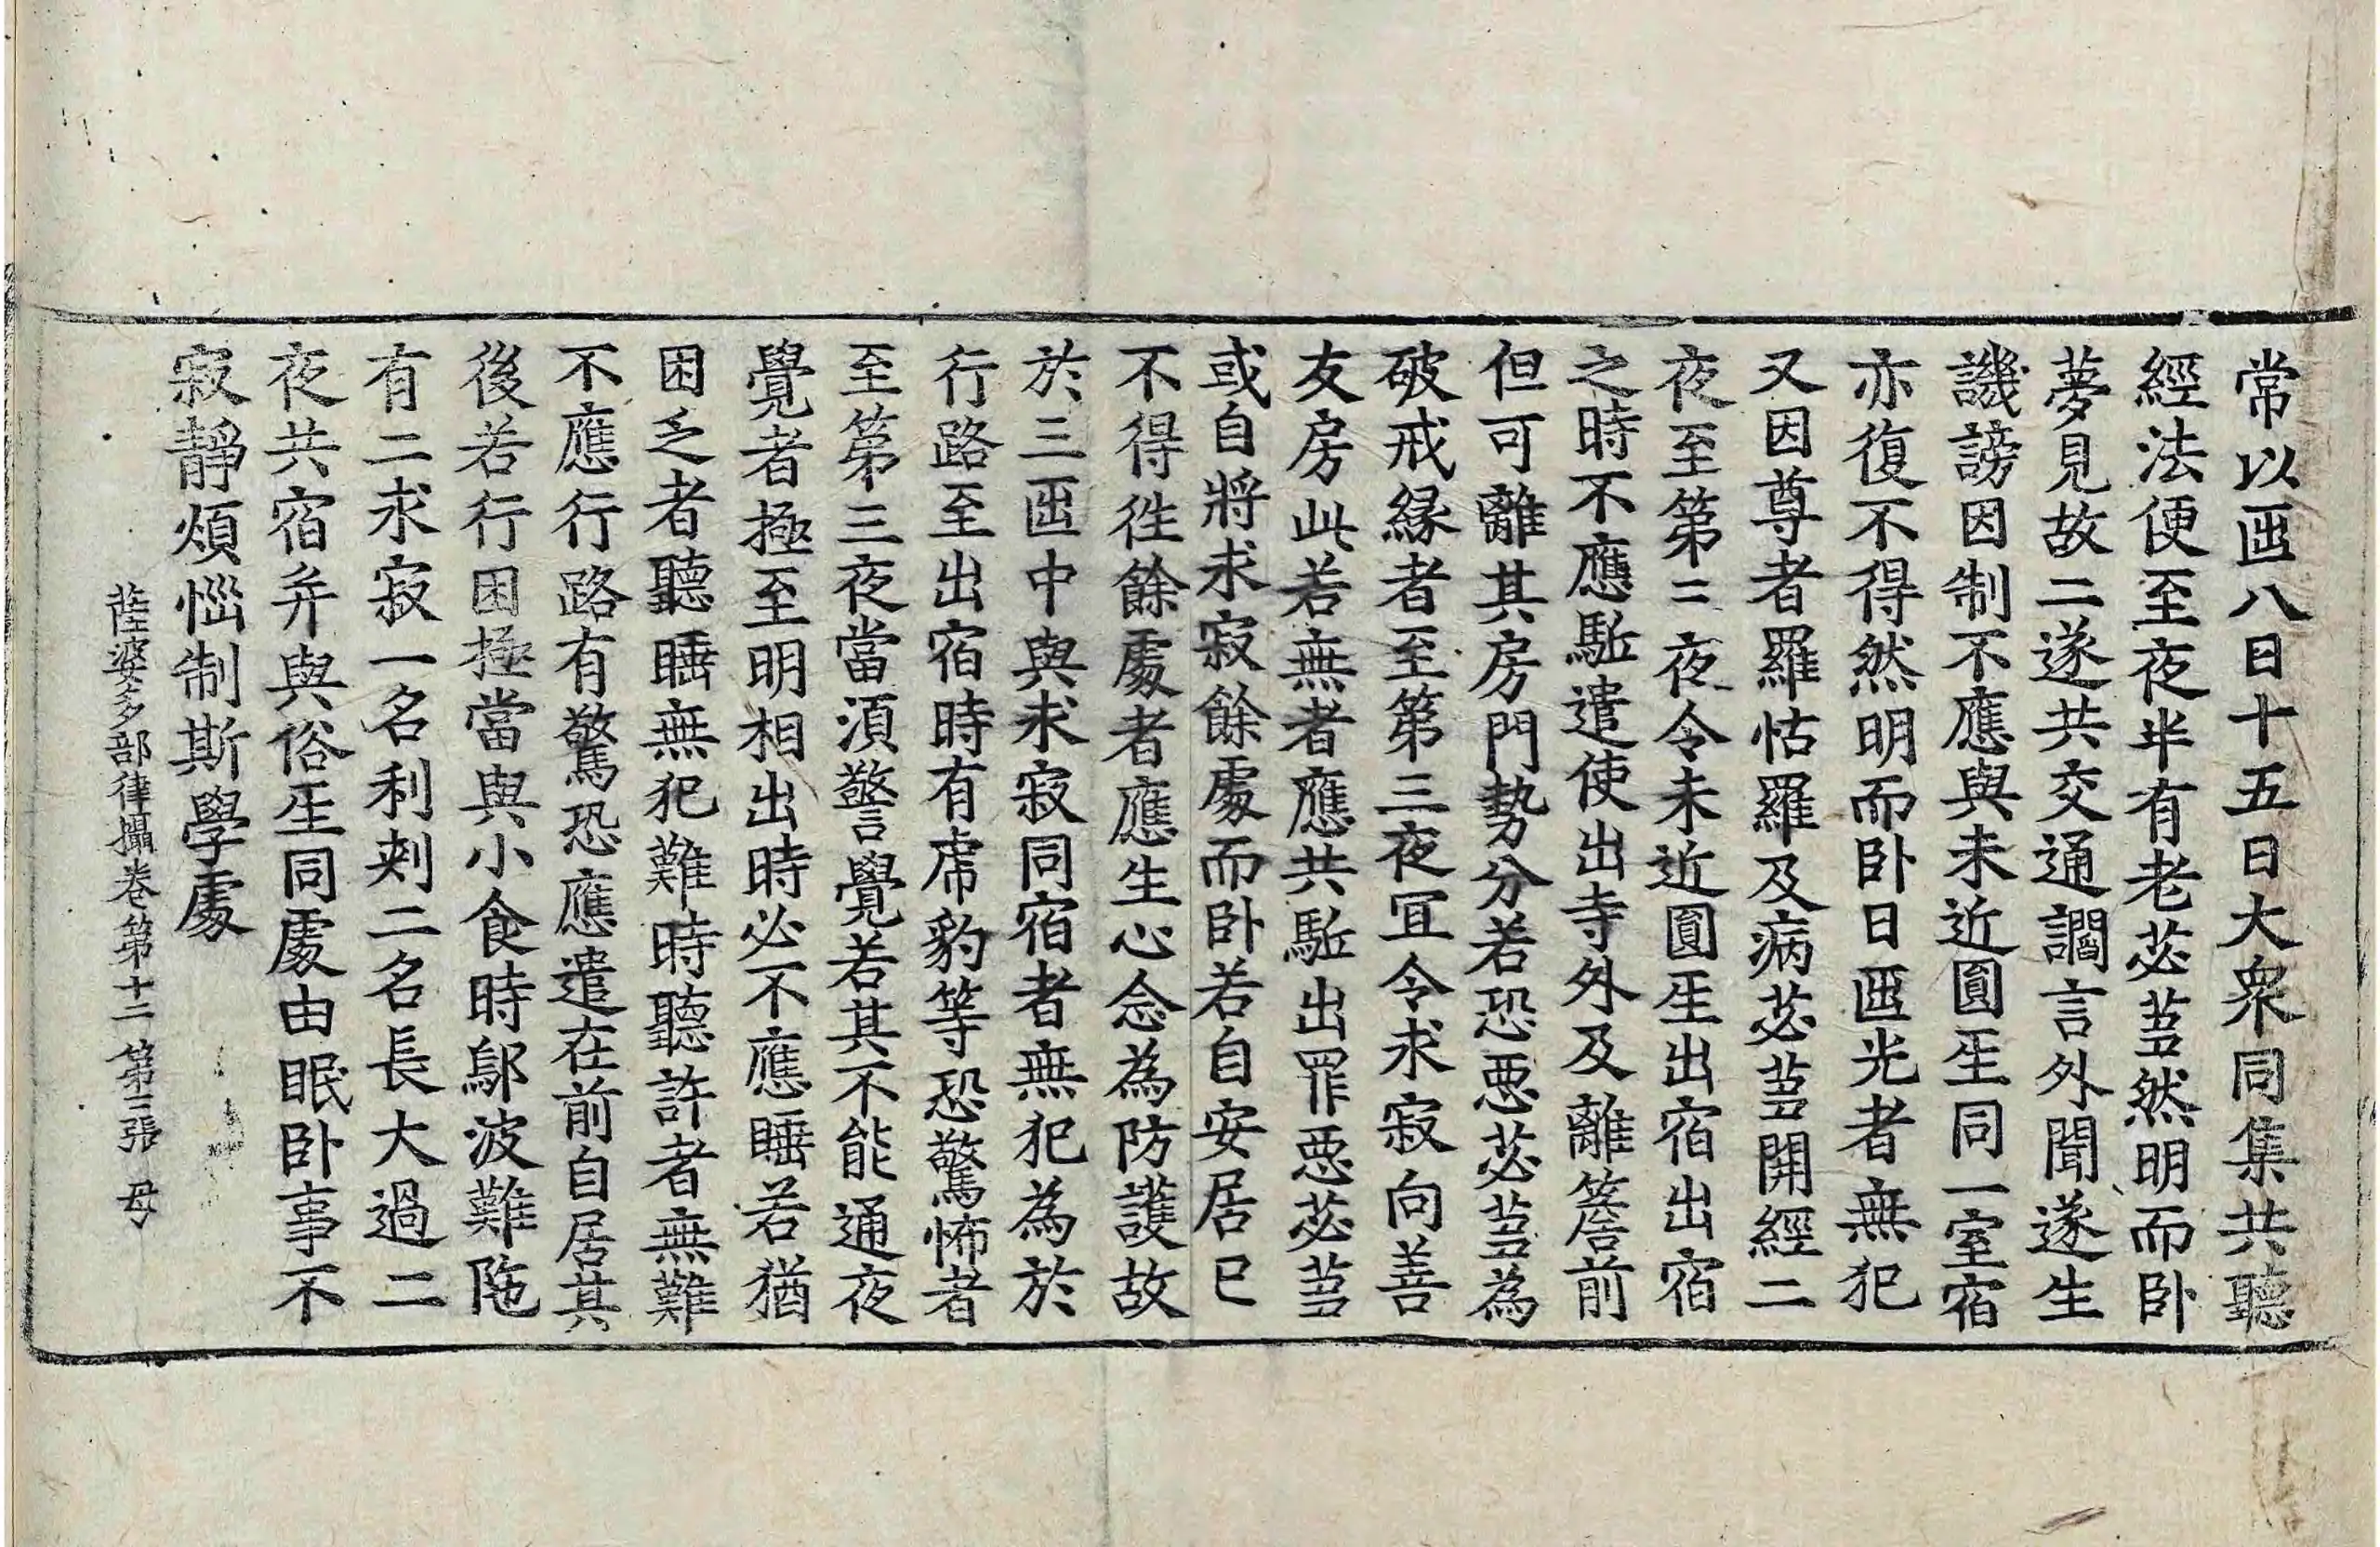 常以𠥱八日十五日大衆同集共聽
經法便至夜半有老苾芻然明而卧
夢見故二遂共交通讇言外聞遂生
譏謗因制不應與未近圓𤯔同一室宿
亦復不得然明而卧日𠥱光者無犯
又因尊者羅怙羅及病苾芻開經二
夜至第三夜令未近圓𤯔出宿出宿
之時不應駈遣使出寺外及離簷前
但可離其房門勢分若恐惡苾芻為
破戒縁者至第三夜冝令求寂向善
友房此若無者應共駈出罪惡苾芻
或自將求寂餘處而卧若自安居已
不得徃餘處者應生心念為防護故
於三𠥱中與求寂同宿者無犯為於
行路至出宿時有虎豹等恐驚怖者
至第三夜當須警覺若其不能通夜
覺者極至明相出時必不應睡若猶
困乏者聽睡無犯難時聽許者無難
不應行路有驚恐應遣在前自居其
後若行困極當與小食時鄔波難陁
有二求寂一名利刺二名長大過二
夜共宿并與俗𤯔同處由眠卧事不
寂靜煩惱制斯學處
薩婆多部律攝卷第十二 第二張 母